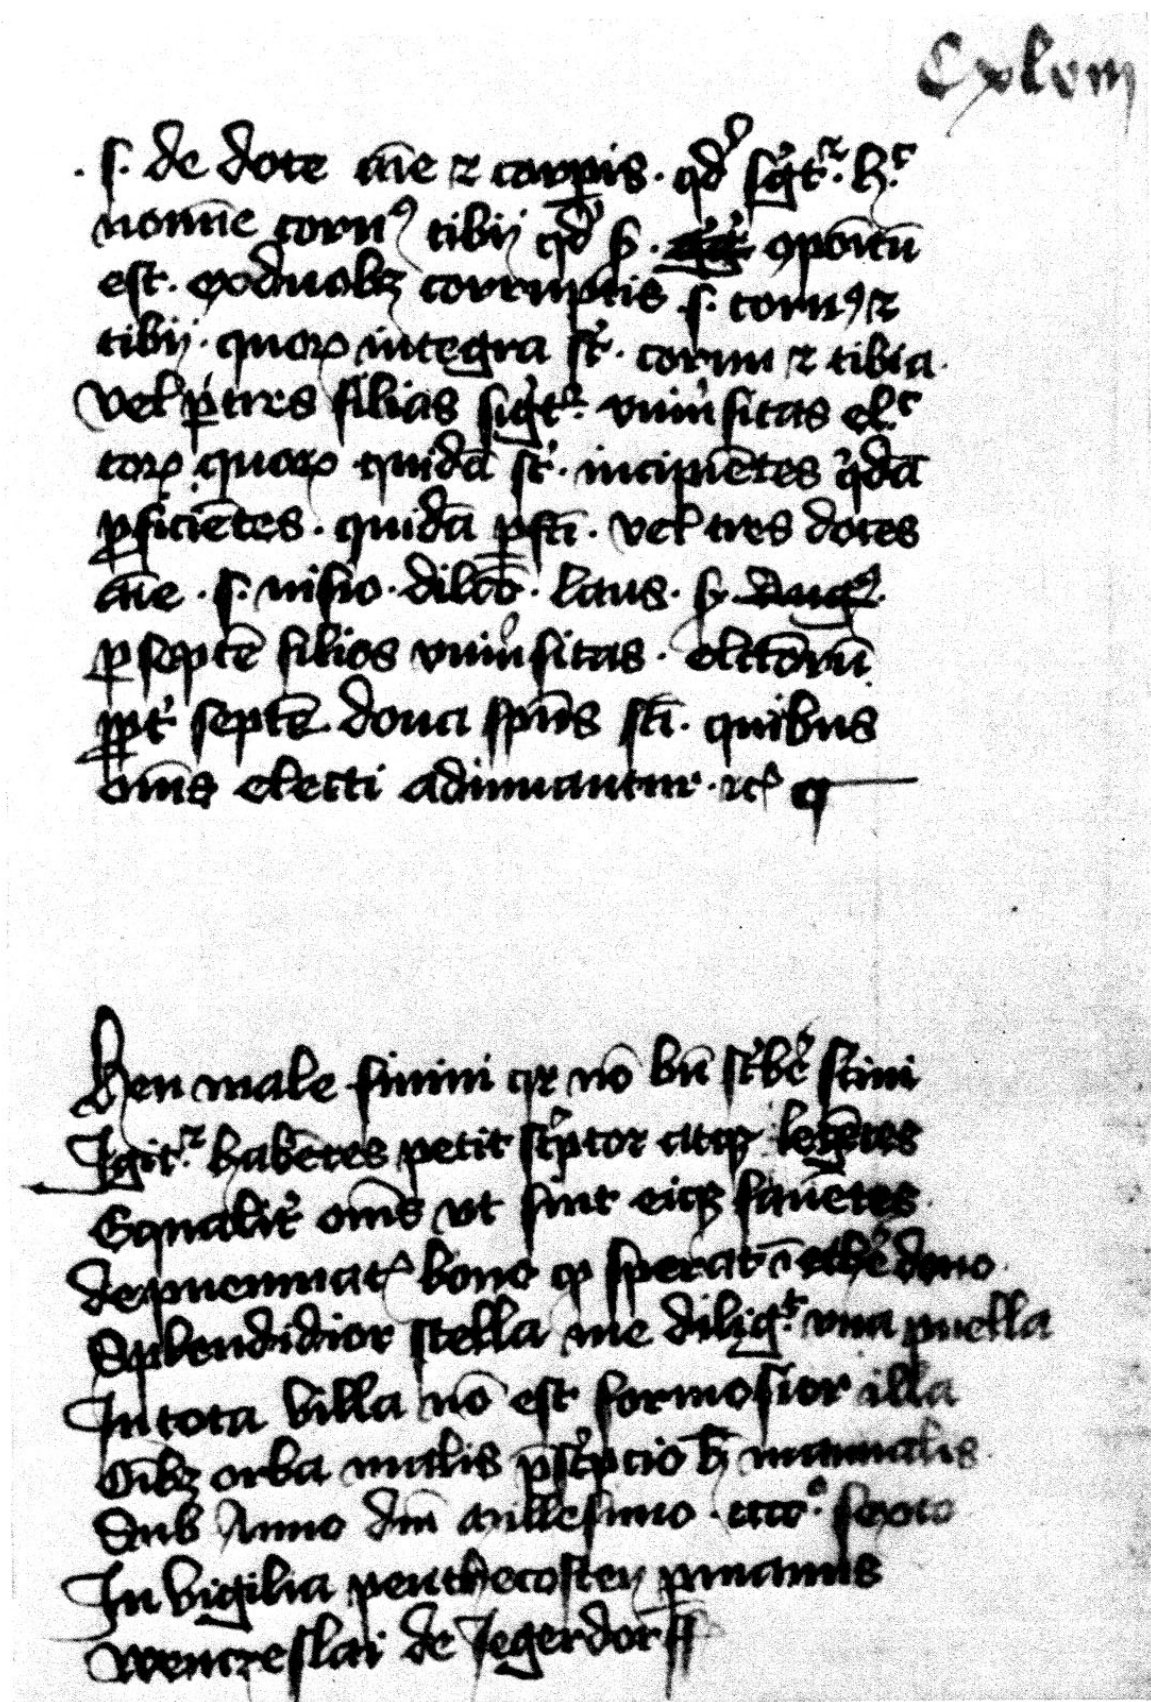 Cxlviij
.s. de dote aīe ⁊ corꝑis. qd' sigͭt2. hic
nomīe cornꝰ tibij qd' ſ. ꝯpoītū
est. ex duobꝫ corruptis .s. cornꝰ ⁊
tibij. quoꝝ integra st'. cornu ⁊ tibia.
vel p tres filias sigt2. vniu'sitas elc
toꝝ quoꝝ quidā st'. incipiētes qͥdā
ꝓficiētes. quidā ꝑfti. vel tres dotes
aīe .s. visio. dilco. laus. ſ.
ꝑ septē filios vniu'sitas. elctorū
ꝓpt' septē dona spūs sti. quibus
om̄s electi adiuuantur. ⁊cͣ
Heu male finiui qꝛ nō bn̄ sc'be' sciui
Igit2 habētes petit sc'ptor atqꝫ legētes
Equalit' om̄s vt sint eiqꝫ fauētes
de pueniat bono qͦ sperat ī ethe' dono.
Splendidior stella me diligͭ vna puella
In tota villa nō est formosior illa
Oībꝫ orba malis p̄sc'pcio h̄ manualis.
Sub Anno dn̄i Millesimo. cccc° sexto
In vigilia penthecosten ꝑ manus
wenczeslai de Jegerdorff